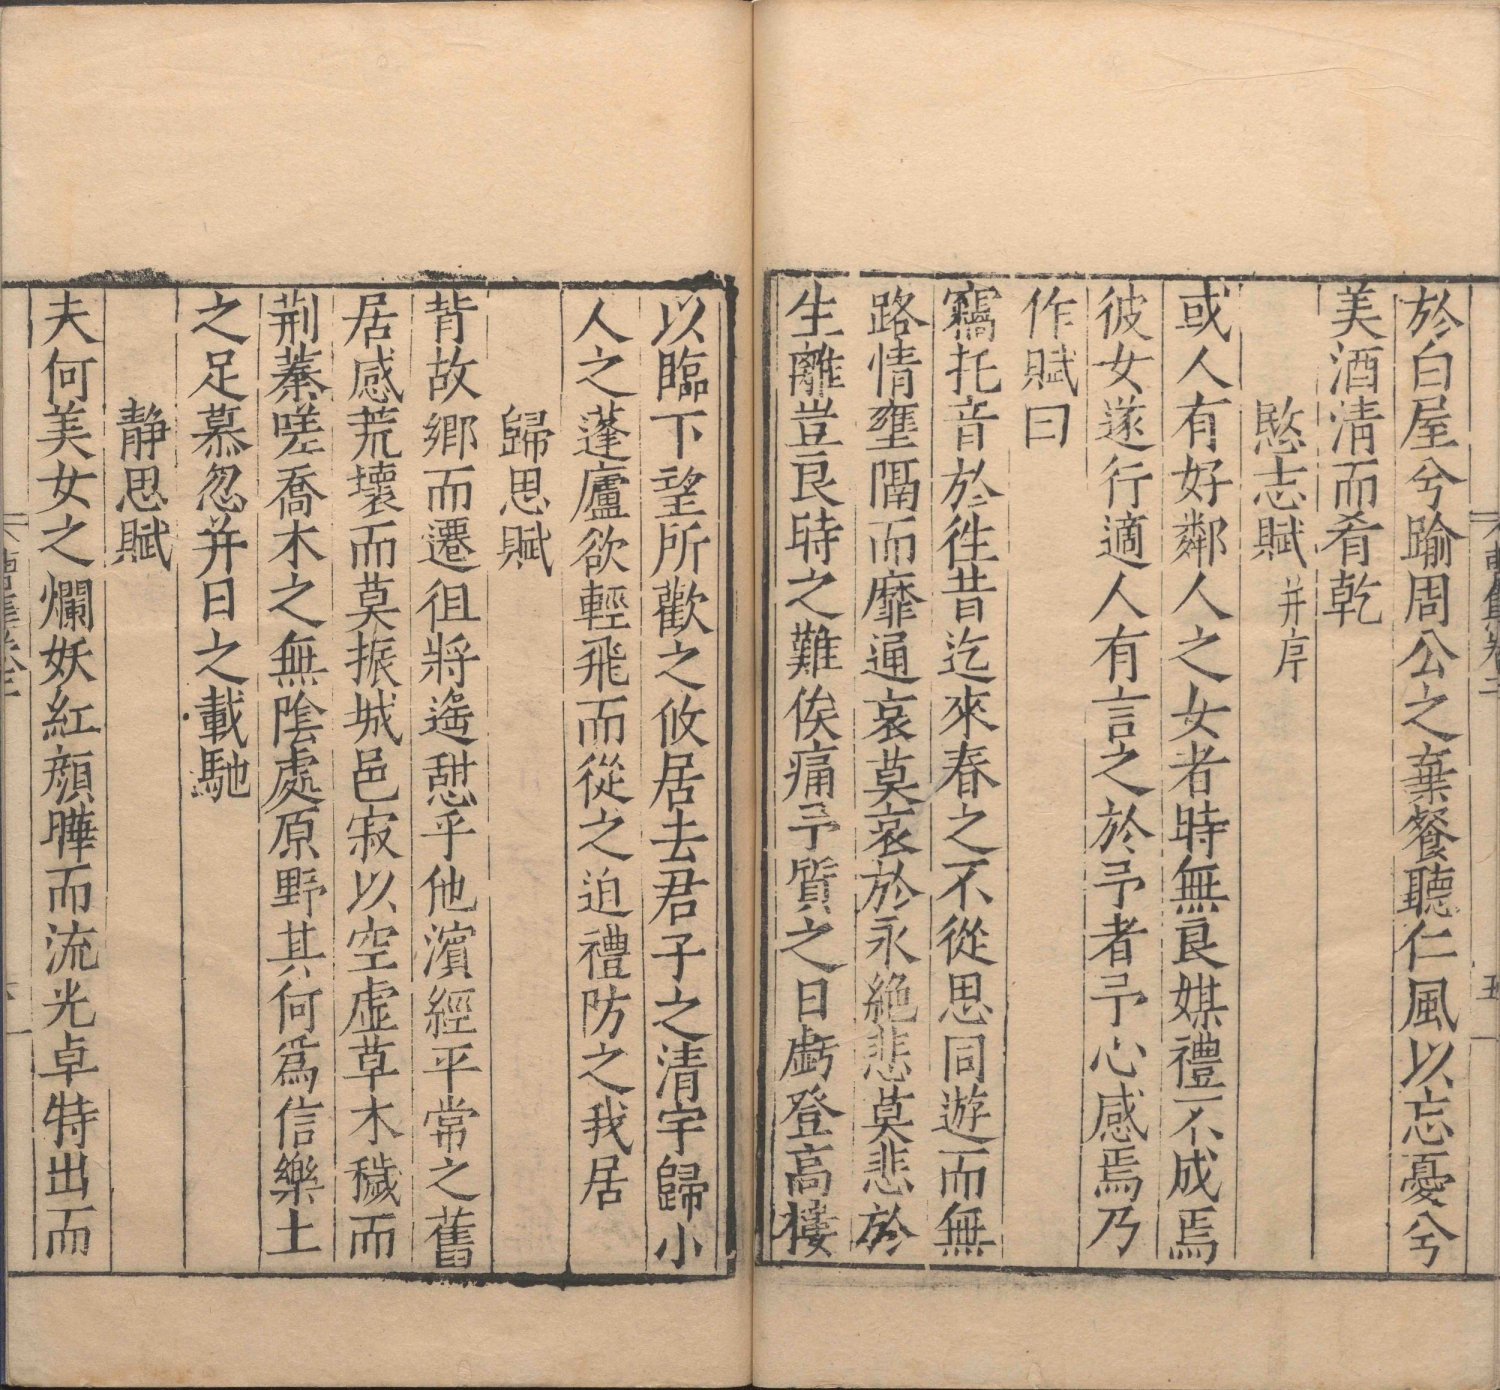 於白屋兮踰周公之棄餐聽仁風以忘憂兮
美酒清而肴乾
愍志賦 并序
或人有好鄰人之女者時無良媒禮不成焉
彼女遂行適人有言之於予者予心感焉乃
作賦曰
竊托音於徃昔迄來春之不從思同遊而無
路情壅隔而靡通哀莫哀於永絶悲莫悲於
生離豈良時之難俟痛予質之日虧登高樓
以臨下望所歡之攸居去君子之清宇歸小
人之蓬廬欲輕飛而從之迫禮防之我居
歸思賦
背故鄉而遷徂將遙憇乎他濱經平常之舊
居感荒壞而莫振城邑寂以空虛草木穢而
荆蓁嗟喬木之無陰處原野其何爲信樂土
之足慕忽并日之載馳
静思賦
夫何美女之爛妖紅顏曄而流光卓特出而